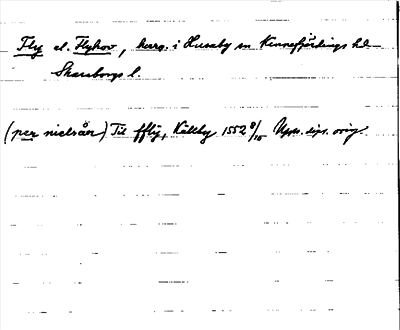 Fly el. Flyhov, herrg. i Husaby sn Kinnefjärdings hd
Skaraborgs l.
(per nielsån) Til ffly, Källby 1552 9/10 Upps. dipl. orig.